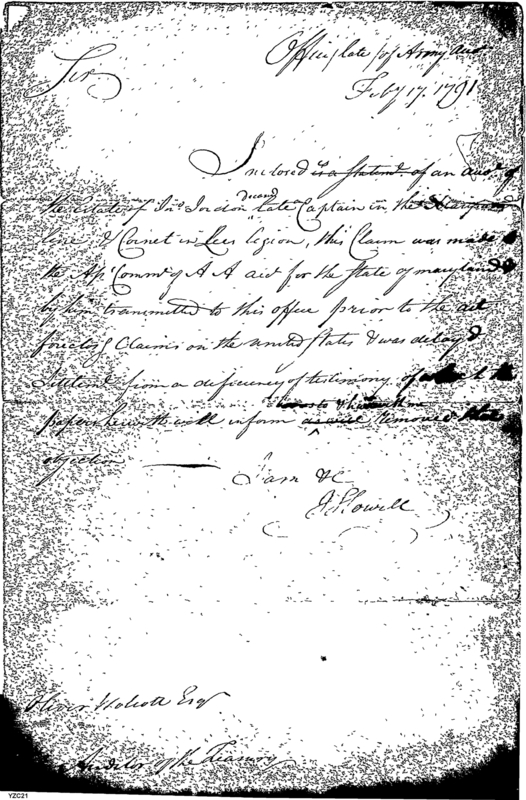 Office late of Army Acct
Feby 17. 1791
Sir
Inclosed is a Statemt of an acct. of
the Estate of Jno Jordon decd late Captain in the
line & Cornet in Lees legion, this Claim was made to
the Ap Commr of A A actg for the State of maryland &
by him transmitted to this office prior to the act
forecl'g Claims on the united States & was delay'd
Settlemt from a deficiency of testimony.
papers herewith will inform remove
objection
I am &c
J Howell
Oliver Wolcott Esqr
Auditor of the Treasury
YZC21